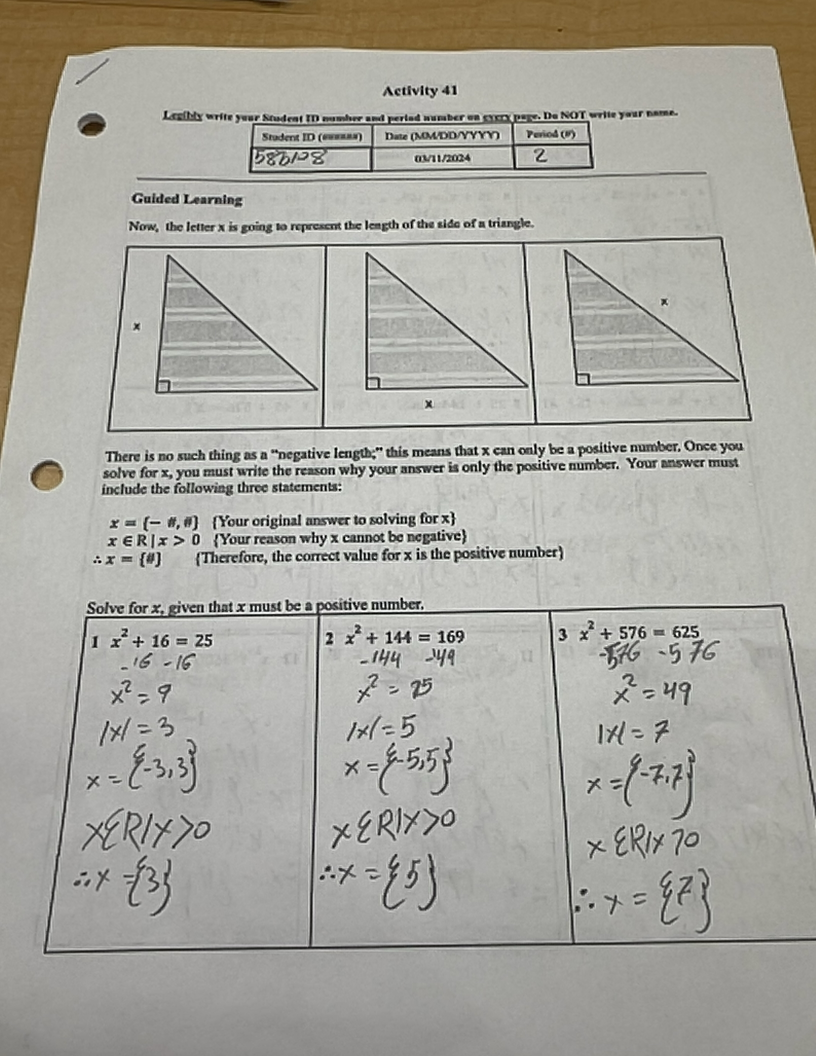 Activity 41
Legibly write your Student ID number and period number on every page. Do NOT write your name.
Student ID (######) Date (MM/DD/YYYY) Period (#)
03/11/2024 2
Guided Learning
Now, the letter x is going to represent the length of the side of a triangle.
x
x
x
There is no such thing as a “negative length;” this means that x can only be a positive number. Once you
solve for x, you must write the reason why your answer is only the positive number. Your answer must
include the following three statements:
x = {− #, #} {Your original answer to solving for x}
x ∈ R | x > 0 {Your reason why x cannot be negative}
∴ x = {#} {Therefore, the correct value for x is the positive number}
Solve for x, given that x must be a positive number.
1 x² + 16 = 25
-16 -16
x² = 9
|x| = 3
x = {-3,3}
x∈R|x>0
∴x={3}
2 x² + 144 = 169
-144 -49
x² = 25
|x|=5
x={-5,5}
x∈R|x>0
∴x={5}
3 x² + 576 = 625
-576 -576
x² = 49
|x| = 7
x={-7,7}
x∈R|x>0
∴x={7}